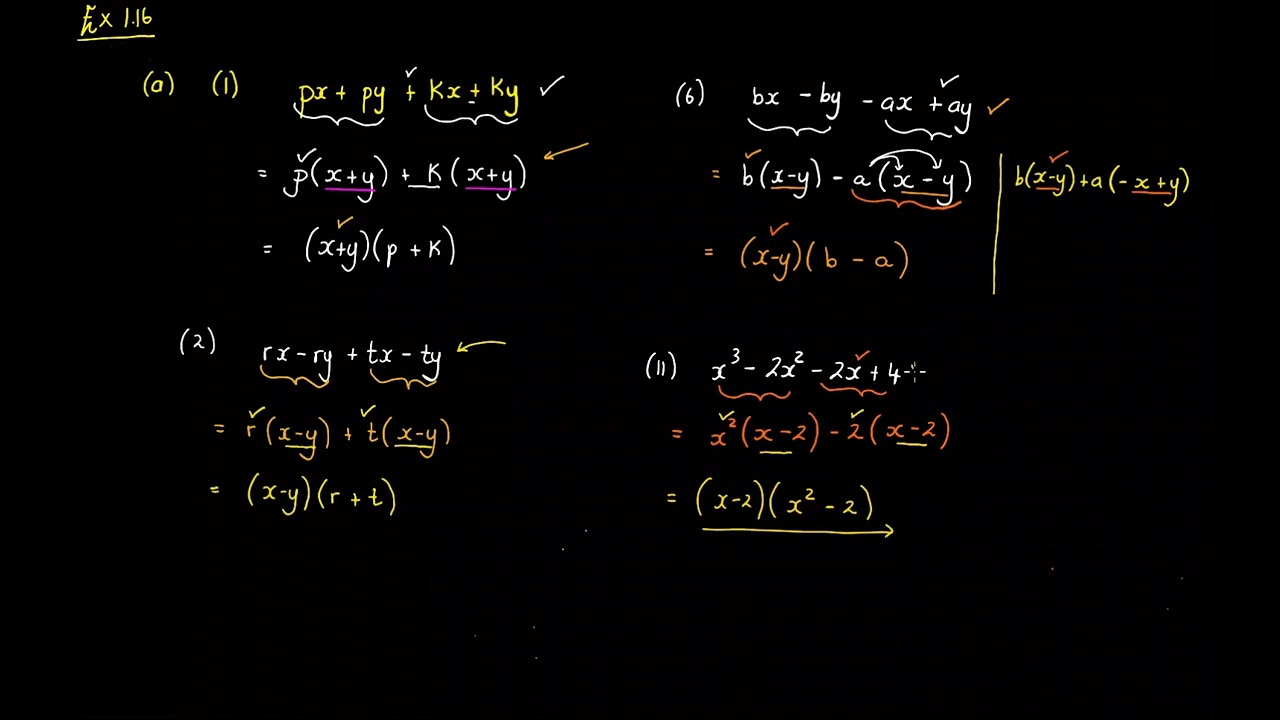 Ex 1.16
(a) (1) px + py + kx + ky
= p(x+y) + k(x+y)
= (x+y)(p + k)
(2) rx - ry + tx - ty
= r(x-y) + t(x-y)
= (x-y)(r + t)
(6) bx - by - ax + ay
= b(x-y) - a(x - y)
b(x-y)+a(-x+y)
= (x-y)(b - a)
(11) x³ - 2x² - 2x + 4
= x²(x-2) - 2(x-2)
= (x-2)(x² - 2)